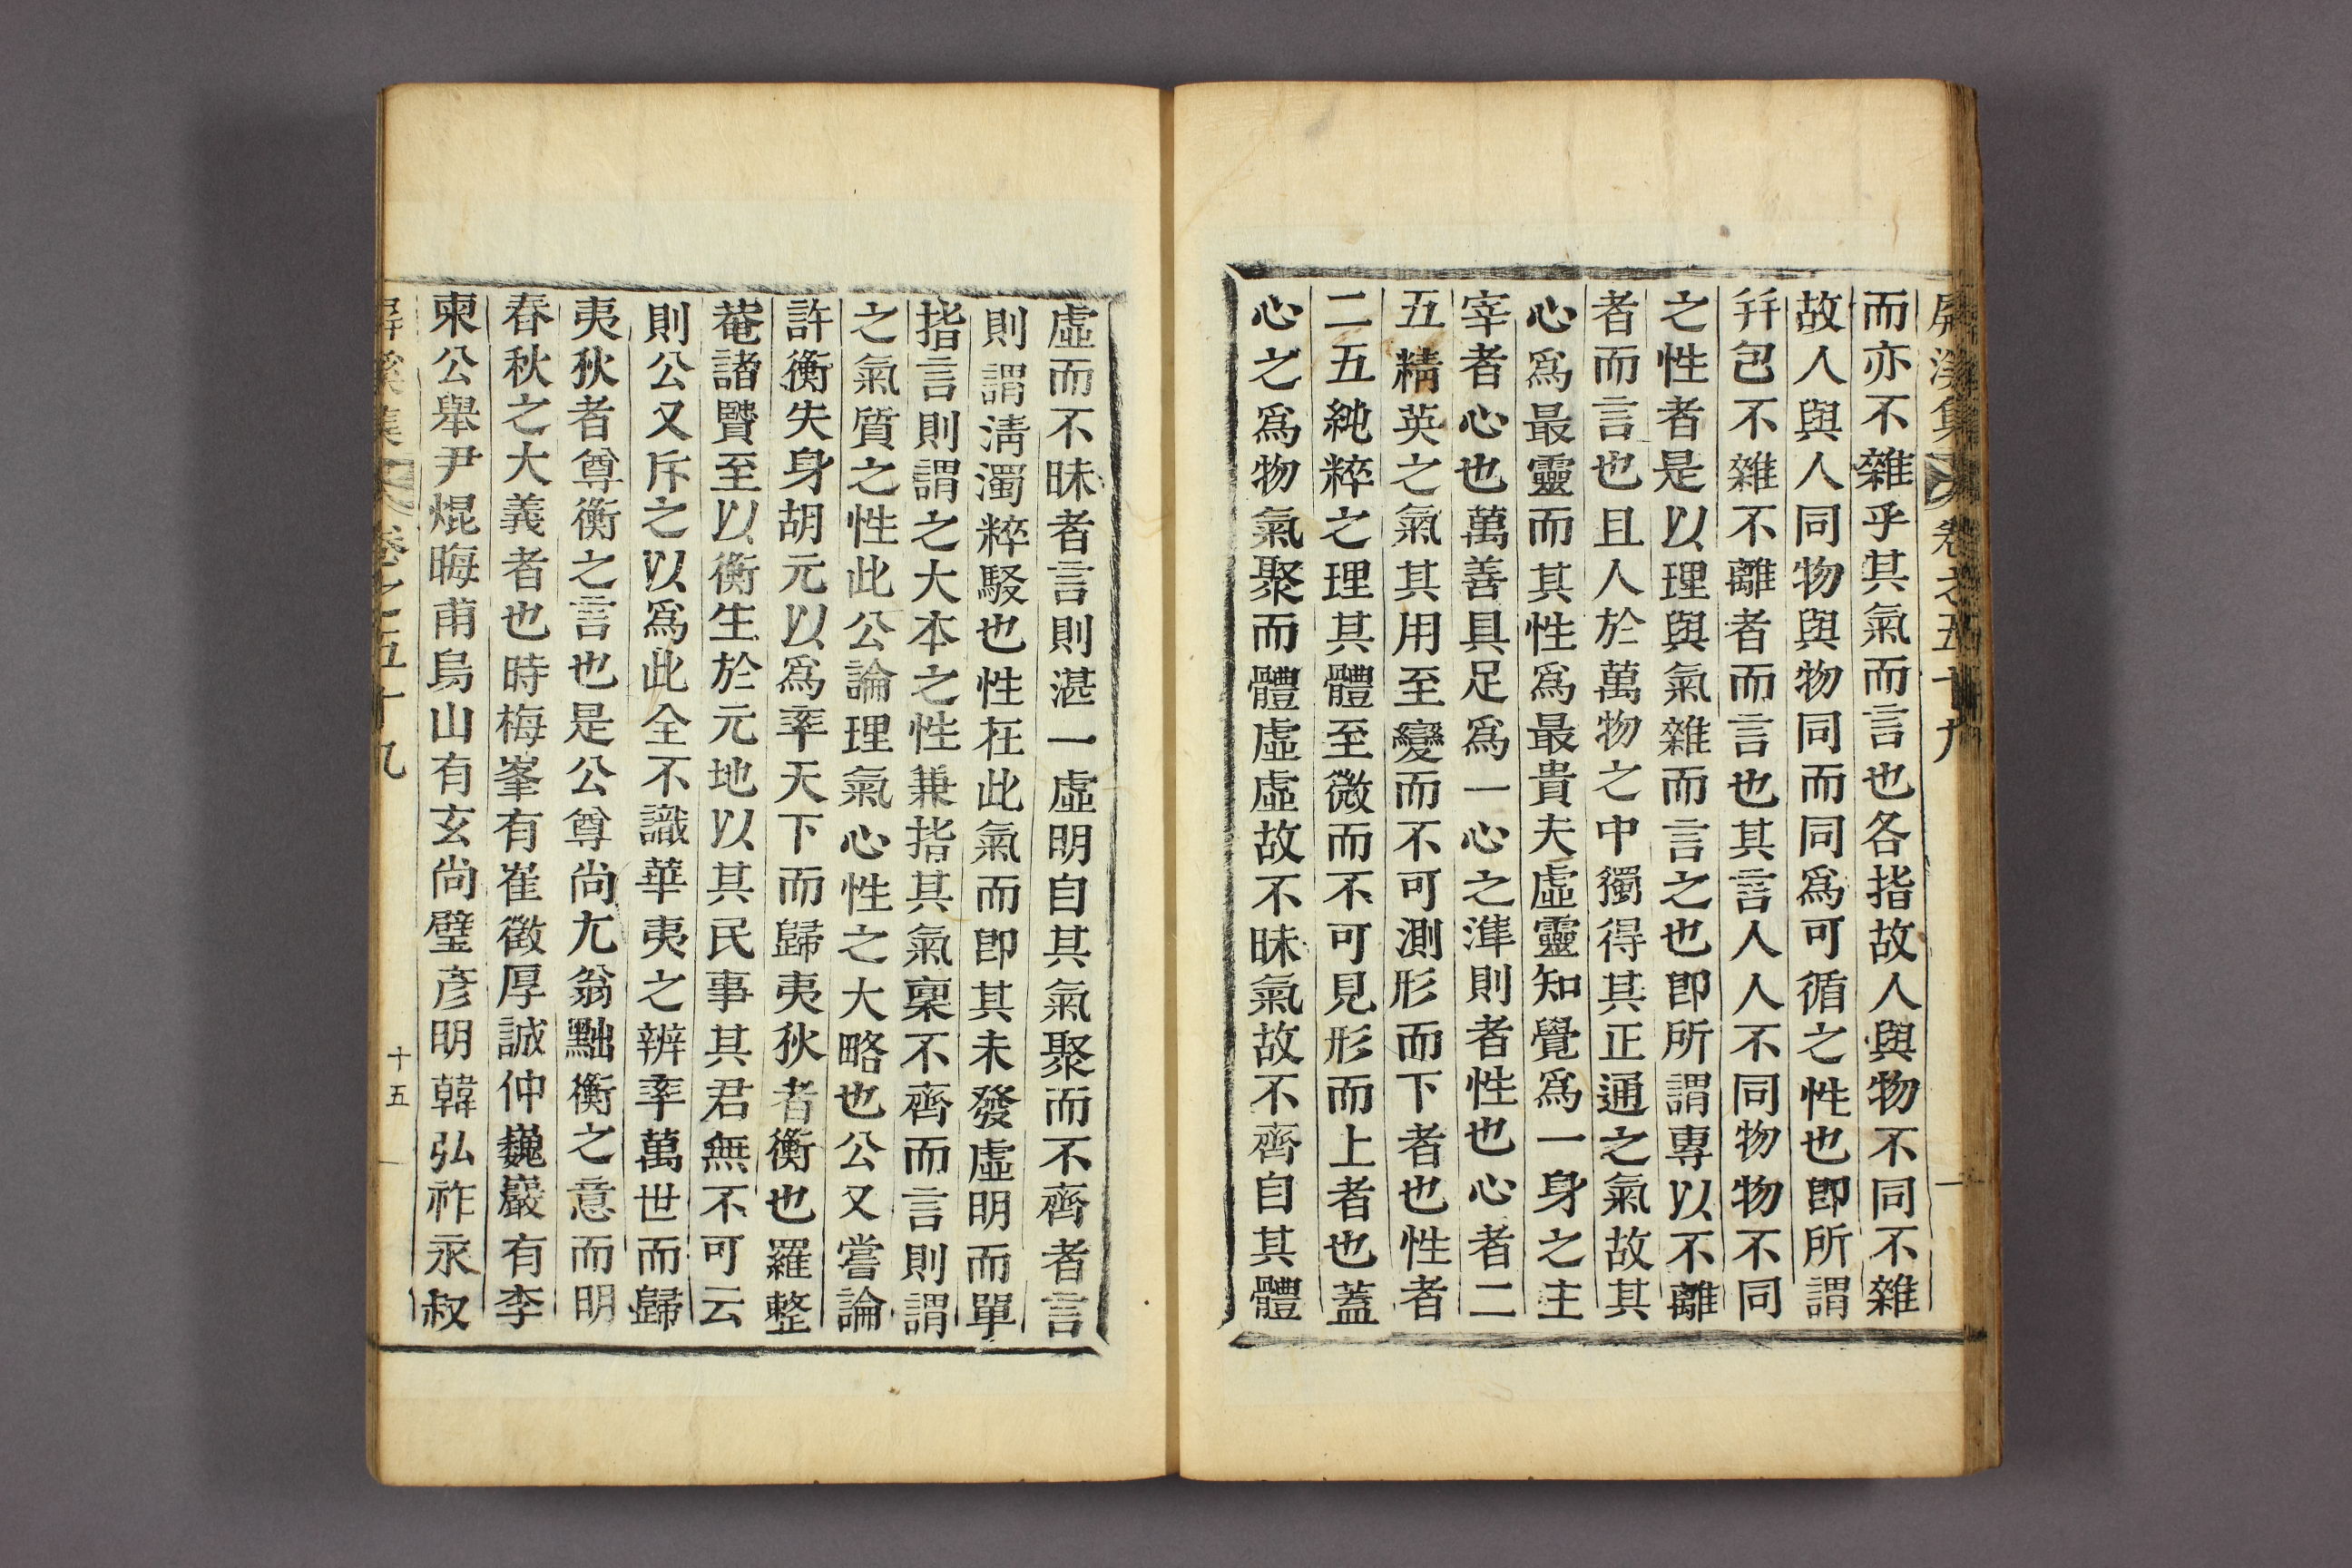 屛溪集 卷之五十九
而亦不雜乎其氣而言也各指故人與物不同不雜
故人與人同物與物同而同爲可循之性也卽所謂
幷包不雜不離者而言也其言人人不同物物不同
之性者是以理與氣雜而言之也卽所謂專以不離
者而言也且人於萬物之中獨得其正通之氣故其
心爲最靈而其性爲最貴夫虛靈知覺爲一身之主
宰者心也萬善具足爲一心之準則者性也心者二
五精英之氣其用至變而不可測形而下者也性者
二五純粹之理其體至微而不可見形而上者也蓋
心之爲物氣聚而體虛虛故不昧氣故不齊自其體
虛而不昧者言則湛一虛明自其氣聚而不齊者言
則謂淸濁粹駁也性在此氣而卽其未發虛明而單
指言則謂之大本之性兼指其氣稟不齊而言則謂
之氣質之性此公論理氣心性之大略也公又嘗論
許衡失身胡元以爲率天下而歸夷狄者衡也羅整
菴諸賢至以衡生於元地以其民事其君無不可云
則公又斥之以爲此全不識華夷之辨率萬世而歸
夷狄者尊衡之言也是公尊尙尤翁黜衡之意而明
春秋之大義者也時梅峯有崔徵厚誠仲巍巖有李
柬公舉尹焜晦甫烏山有玄尙璧彥明韓弘祚永叔
屛溪集 卷之五十九
十五